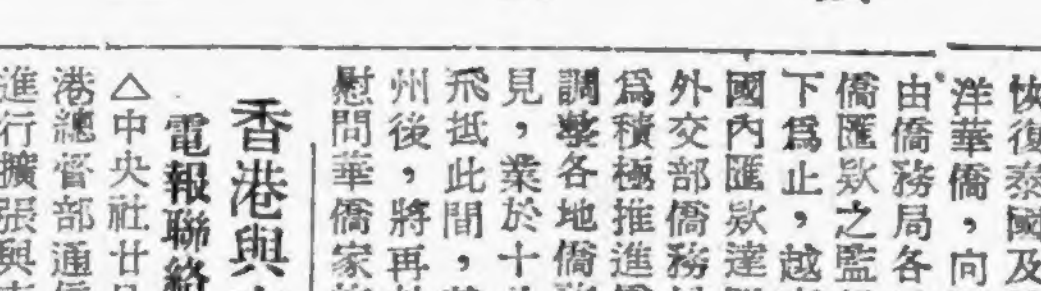 恢復泰國及
洋華僑，向
由僑務局各
僑匯欵之監
下爲止，越
國內匯欵達
外交部僑務
爲積極推進
調整各地僑
見，業於十
飛抵此間，
州後，將再
慰問華僑家
香港與
電報聯絡
△中央社廿
港總督部通
進行擴張與